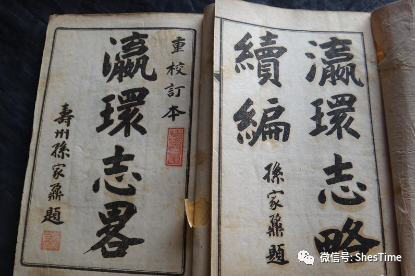 瀛環志略
續編
孫家鼐題
重校訂本
瀛環志畧
壽州孫家鼐題
微信号: ShesTime